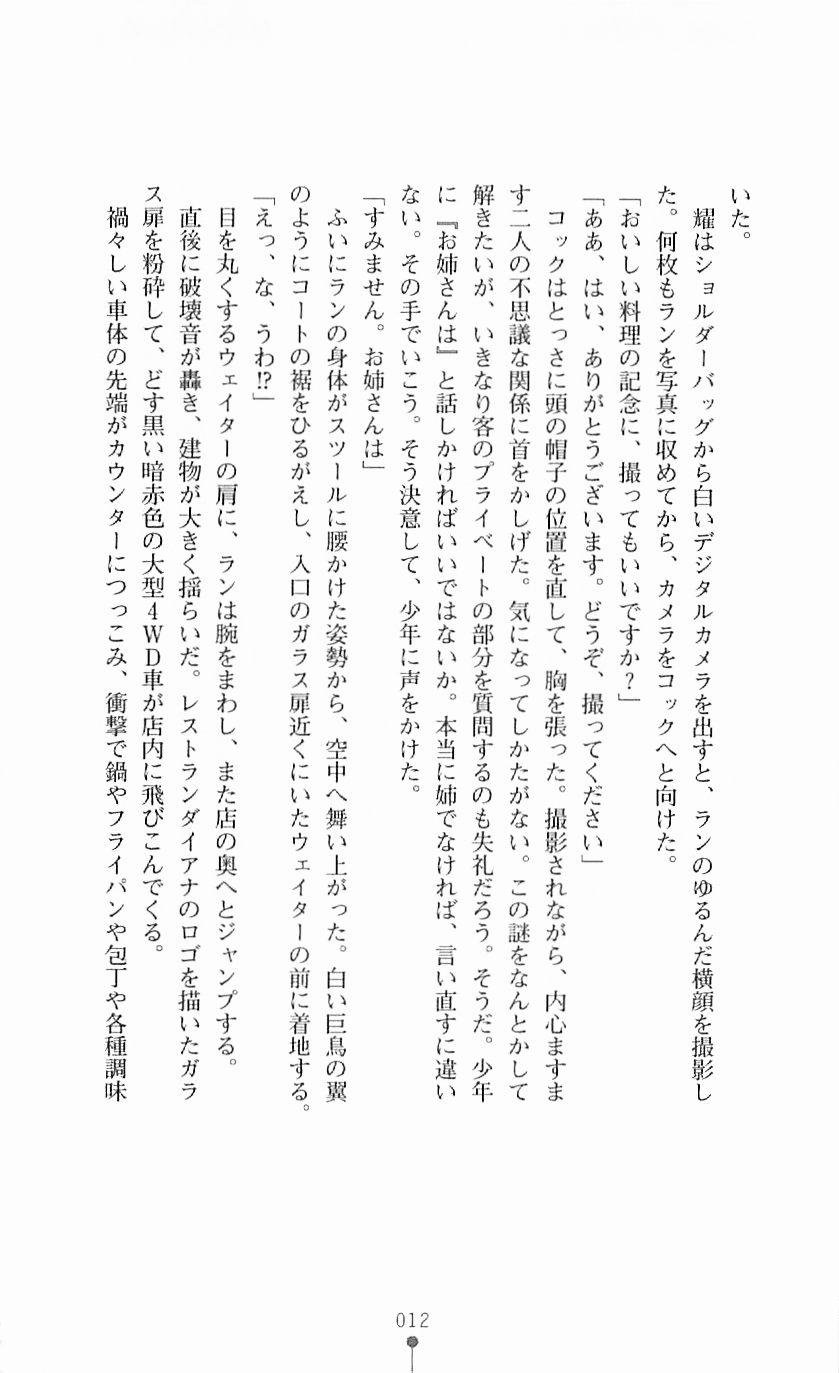 いた。
　耀はショルダーバッグから白いデジタルカメラを出すと、ランのゆるんだ横顔を撮影し
た。何枚もランを写真に収めてから、カメラをコックへと向けた。
「おいしい料理の記念に、撮ってもいいですか？」
「ああ、はい、ありがとうございます。どうぞ、撮ってください」
　コックはとっさに頭の帽子の位置を直して、胸を張った。撮影されながら、内心ますま
す二人の不思議な関係に首をかしげた。気になってしかたがない。この謎をなんとかして
解きたいが、いきなり客のプライベートの部分を質問するのも失礼だろう。そうだ。少年
に『お姉さんは』と話しかければいいではないか。本当に姉でなければ、言い直すに違い
ない。その手でいこう。そう決意して、少年に声をかけた。
「すみません。お姉さんは」
　ふいにランの身体がスツールに腰かけた姿勢から、空中へ舞い上がった。白い巨鳥の翼
のようにコートの裾をひるがえし、入口のガラス扉近くにいたウェイターの前に着地する。
「えっ、な、うわ!?」
　目を丸くするウェイターの肩に、ランは腕をまわし、また店の奥へとジャンプする。
　直後に破壊音が轟き、建物が大きく揺らいだ。レストランダイアナのロゴを描いたガラ
ス扉を粉砕して、どす黒い暗赤色の大型４ＷＤ車が店内に飛びこんでくる。
　禍々しい車体の先端がカウンターにつっこみ、衝撃で鍋やフライパンや包丁や各種調味
012